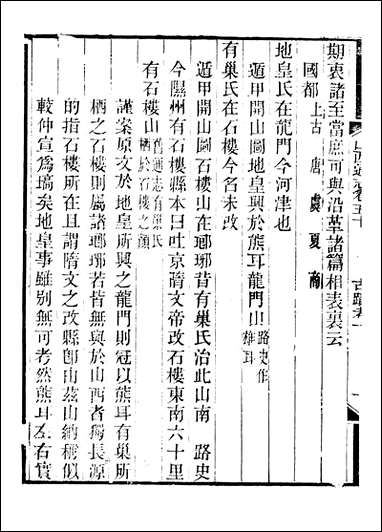 期衷諸至當庶可與沿革諸篇相表裏云
國都 上古 唐 虞 夏 商
地皇氏在龍門今河津也
遁甲開山圖地皇興於熊耳龍門山 路史作雄耳
有巢氏在石樓今名未改
遁甲開山圖石樓山在瑯琊昔有巢氏治此山南 路史
今隰州有石樓縣本曰吐京隋文帝改石樓東南六十里
有石樓山 舊通志有巢氏栖於石樓之顏
謹案原文於地皇所興之龍門則冠以熊耳有巢所
栖之石樓則屬諸瑯琊若皆無與於山西者獨長源
的指石樓所在且謂隋文之改縣卽由茲山納稱似
較仲宣爲瑀矣地皇事雖別無可考然熊耳左右實
山西通志卷五十
古蹟考一